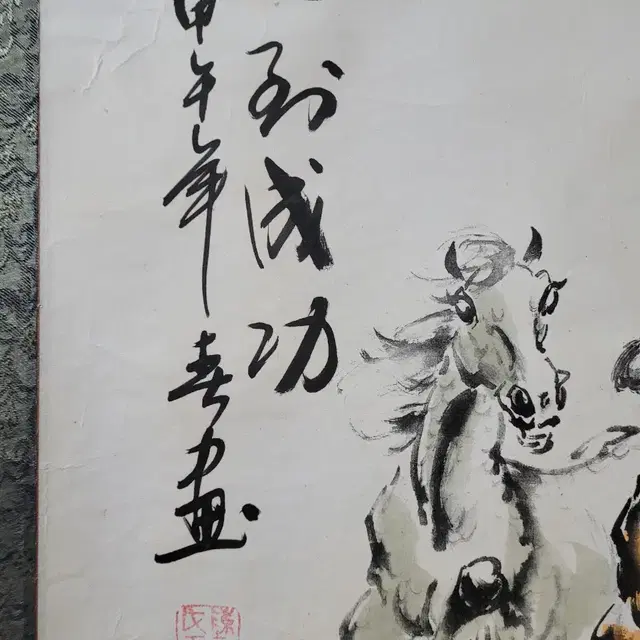 到成功
甲午年春画